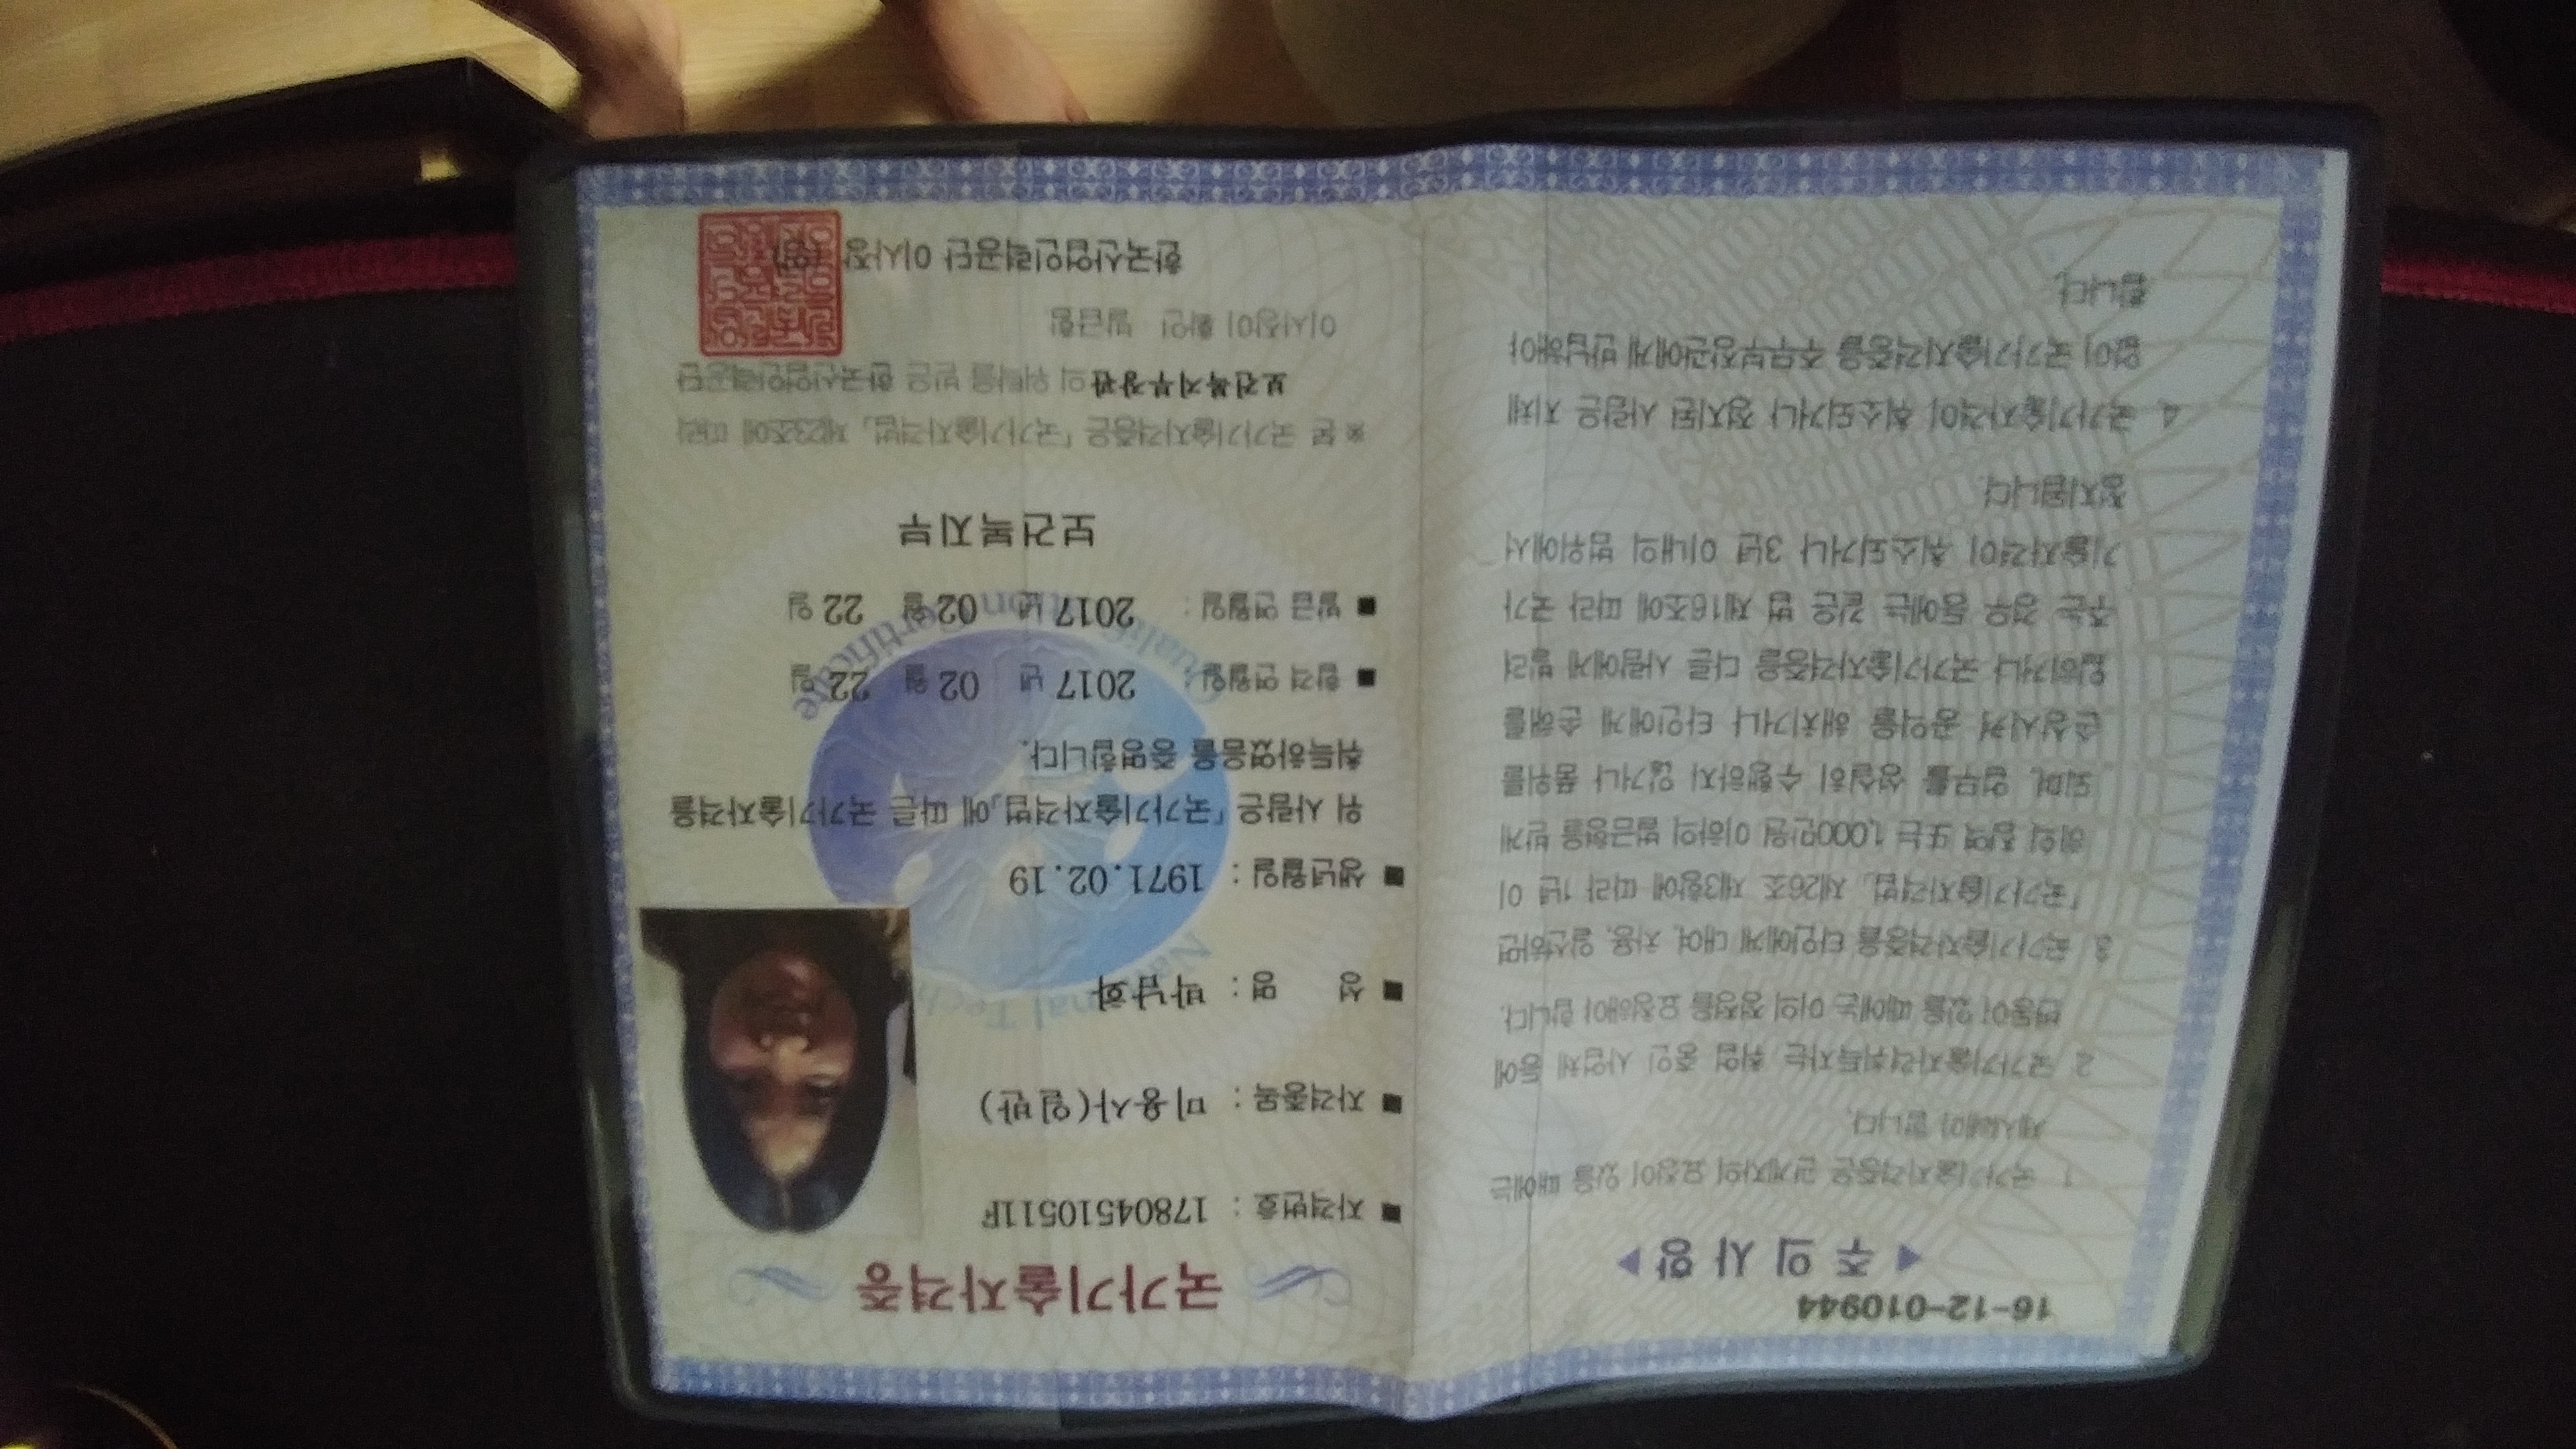 16-12-010944
주 의 사 항
1. 국가기술자격증은 관계자의 요청이 있을 때에는
제시해야 합니다.
2. 국가기술자격취득자는 취업 중인 사업체 등에
변동이 있을 때에는 이의 정정을 요청해야 합니다.
3. 국가기술자격증을 타인에게 대여, 차용, 알선하면
「국가기술자격법」 제26조 제3항에 따라 1년 이
하의 징역 또는 1,000만원 이하의 벌금형을 받게
되며, 업무를 성실히 수행하지 않거나 품위를
손상시켜 공익을 해치거나 타인에게 손해를
입히거나 국가기술자격증을 다른 사람에게 빌려
주는 경우 등에는 같은 법 제16조에 따라 국가
기술자격이 취소되거나 3년 이내의 범위에서
정지됩니다.
4. 국가기술자격이 취소되거나 정지된 사람은 지체
없이 국가기술자격증을 주무부장관에게 반납해야
합니다.
국가기술자격증
■ 자격번호 : 17804510511F
■ 자격종목 : 미용사(일반)
■ 성 명 : 박남화
■ 생년월일 : 1971.02.19
위 사람은 「국가기술자격법」에 따른 국가기술자격을
취득하였음을 증명합니다.
■ 합격 연월일 : 2017 년 02 월 22 일
■ 발급 연월일 : 2017 년 02 월 22 일
보건복지부
※ 본 국가기술자격증은 「국가기술자격법」 제23조에 따라
보건복지부장관의 위탁을 받은 한국산업인력공단
이사장이 확인 발급함
한국산업인력공단 이사장 (인)